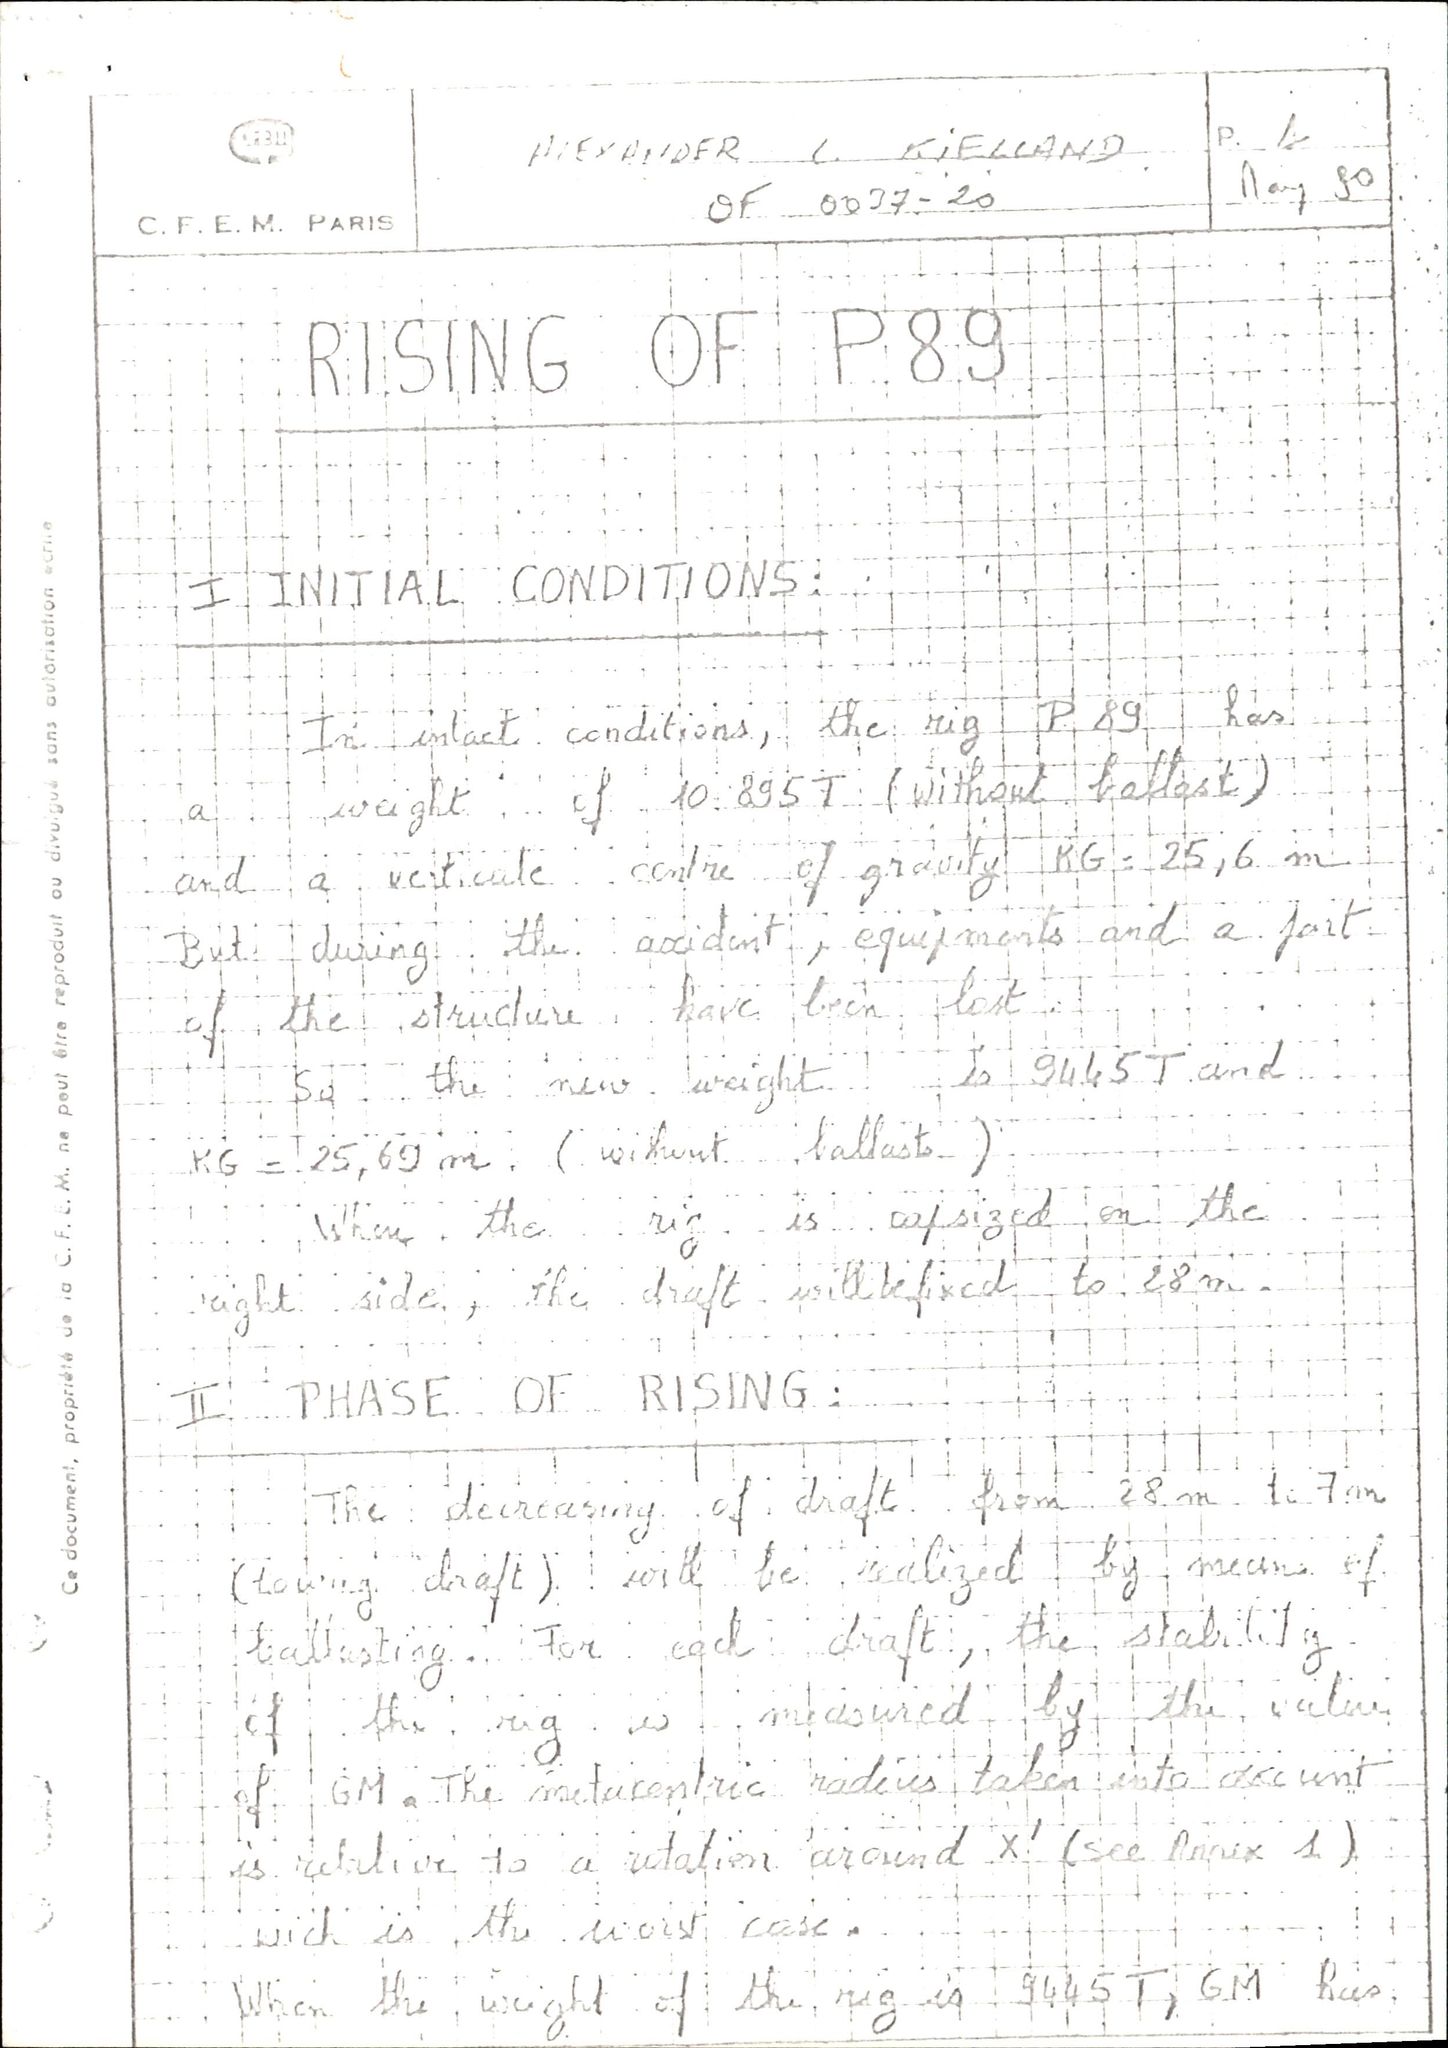 CFEM
C. F. E. M. PARIS
ALEXANDER L. KIELLAND
OF 0037-20
P. 1
May 80
RISING OF P89
I INITIAL CONDITIONS:
In intact conditions, the rig P 89 has
a weight of 10.895T (without ballast)
and a verticale centre of gravity KG = 25,6 m
But during the accident, equipments and a part
of the structure have been lost.
So the new weight is 9445T and
KG = 25,69 m. (without ballasts)
When the rig is capsized on the
right side, the draft will be fixed to 28m.
II PHASE OF RISING:
The decreasing of draft from 28 m to 7 m
(towing draft) will be realized by means of
ballasting. For each draft, the stability
of the rig is measured by the value
of GM. The metacentric radius taken into account
is relative to a rotation around X' (see Annex 1)
wich is the worst case.
When the weight of the rig is 9445T, GM has
Ce document, propriété de la C.F.E.M. ne peut être reproduit ou divulgué sans autorisation écrite